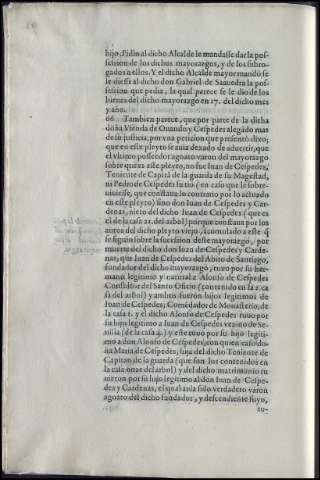 hijo, Pidio al dicho Alcalde le mandasse dar la pos-
session de los dichos mayorazgos, y de los subro-
gados a ellos. Y el dicho Alcalde mayor mandò se
le diesse al dicho don Gabriel de Saauedra la pos-
session que pedia, la qual parece se le dio de los
bienes del dicho mayorazgo en 17. del dicho mes
y año.
66 Tambien parece, que por parte de la dicha
doña de Ouando y Cespedes alegãdo mas
de su justicia, por vna peticion que presentò dixo;
que en este pleyto se auia dexado de aduertir, que
el vltimo posseedor agnato varon del mayorazgo
sobre que era este pleyto, no fue Iuan de Cespedes,
Teniente de Capitã de la guarda de su Magestad,
ni Pedro de Cespedes su tio (en caso que le sobre-
uiuiesse, que constaua lo contrario por lo actuado
en este pleyto) sino don Iuan de Cespedes y Car-
denas, nieto del dicho Iuan de Cespedes (que es
el de la casa 21. del arbol) porque constaua por los
autos del pleyto viejo, acumulado a este q̃
se siguiò sobre la sucession deste mayorazgo, por
muerte del dicho don Iuan de Cespedes y Carde-
nas, que Iuan de Cespedes del Abito de Santiago,
fundador del dicho mayorazgo, tuuo por su her-
mano legitimo y carnal a Alonso de Cespedes
Consultor del Santo Oficio (contenido en la 2. ca
sa del arbol) y ambos fueron hijos legitimos de
Iuan de Cespedes, Comendador de Monasterio, de
la casa 1. y el dicho Alonso de Cespedes tuuo por
su hijo legitimo a Iuan de Cespedes vezino de Se-
uilla (de la casa 4.) y este tuuo por su hijo legiti-
mo a don Alonso de Cespedes, con quien casò do-
ña Maria de Cespedes, hija del dicho Teniente de
Capitan de la guarda (que son los contenidos en
la casa onze del arbol) y del dicho matrimonio tu
uieron por su hijo legitimo al don Iuan de Cespe-
des y Cardenas, el qual auia sido verdadero varon
agnato del dicho fundador, y descendiente suyo,